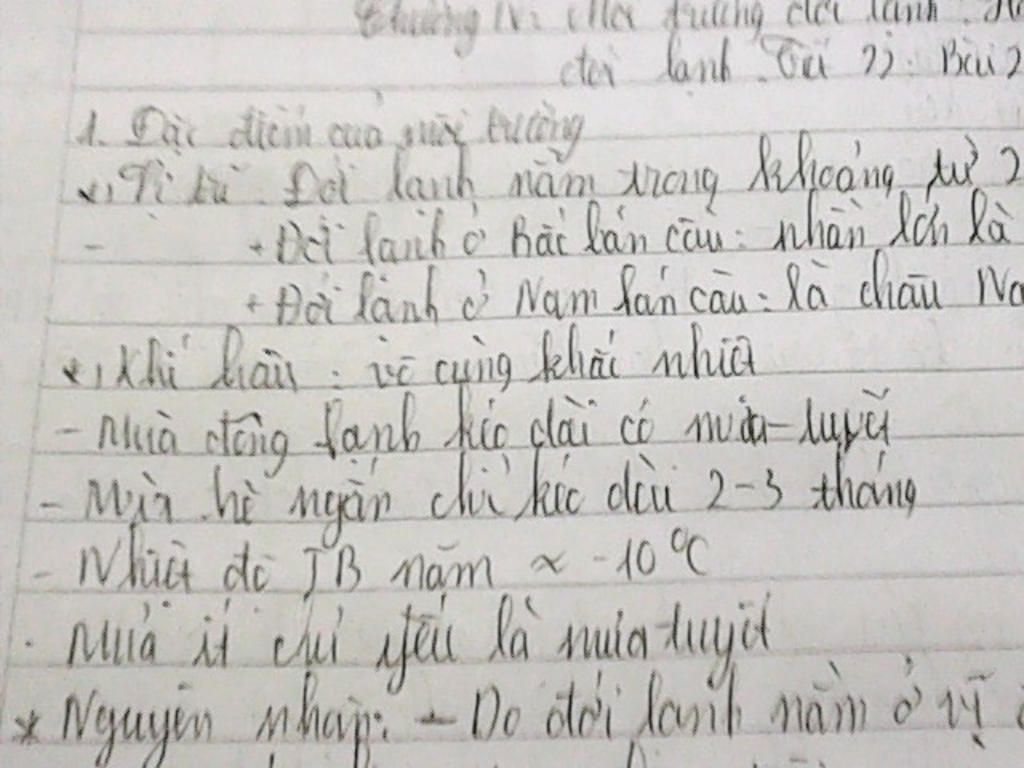 Chương IV: Môi trường đới lạnh. H
đới lạnh. Tiết 22: Bài 2
1. Đặc điểm của môi trường
*, Vị trí Đới lạnh nằm trong khoảng từ 2
- + Đới lạnh ở Bắc bán cầu: nhần lớn là
+ Đới lạnh ở Nam bán cầu: là châu Na
*, Khí hậu: vô cùng khắc nhiệt
- Mùa đông lạnh kéo dài có mưa tuyết
- Mùa hè ngắn chỉ kéo dài 2-3 tháng
- Nhiệt độ TB năm ≈ -10°C
- Mưa ít chủ yếu là mưa tuyết
* Nguyên nhân: - Do đới lạnh nằm ở vị